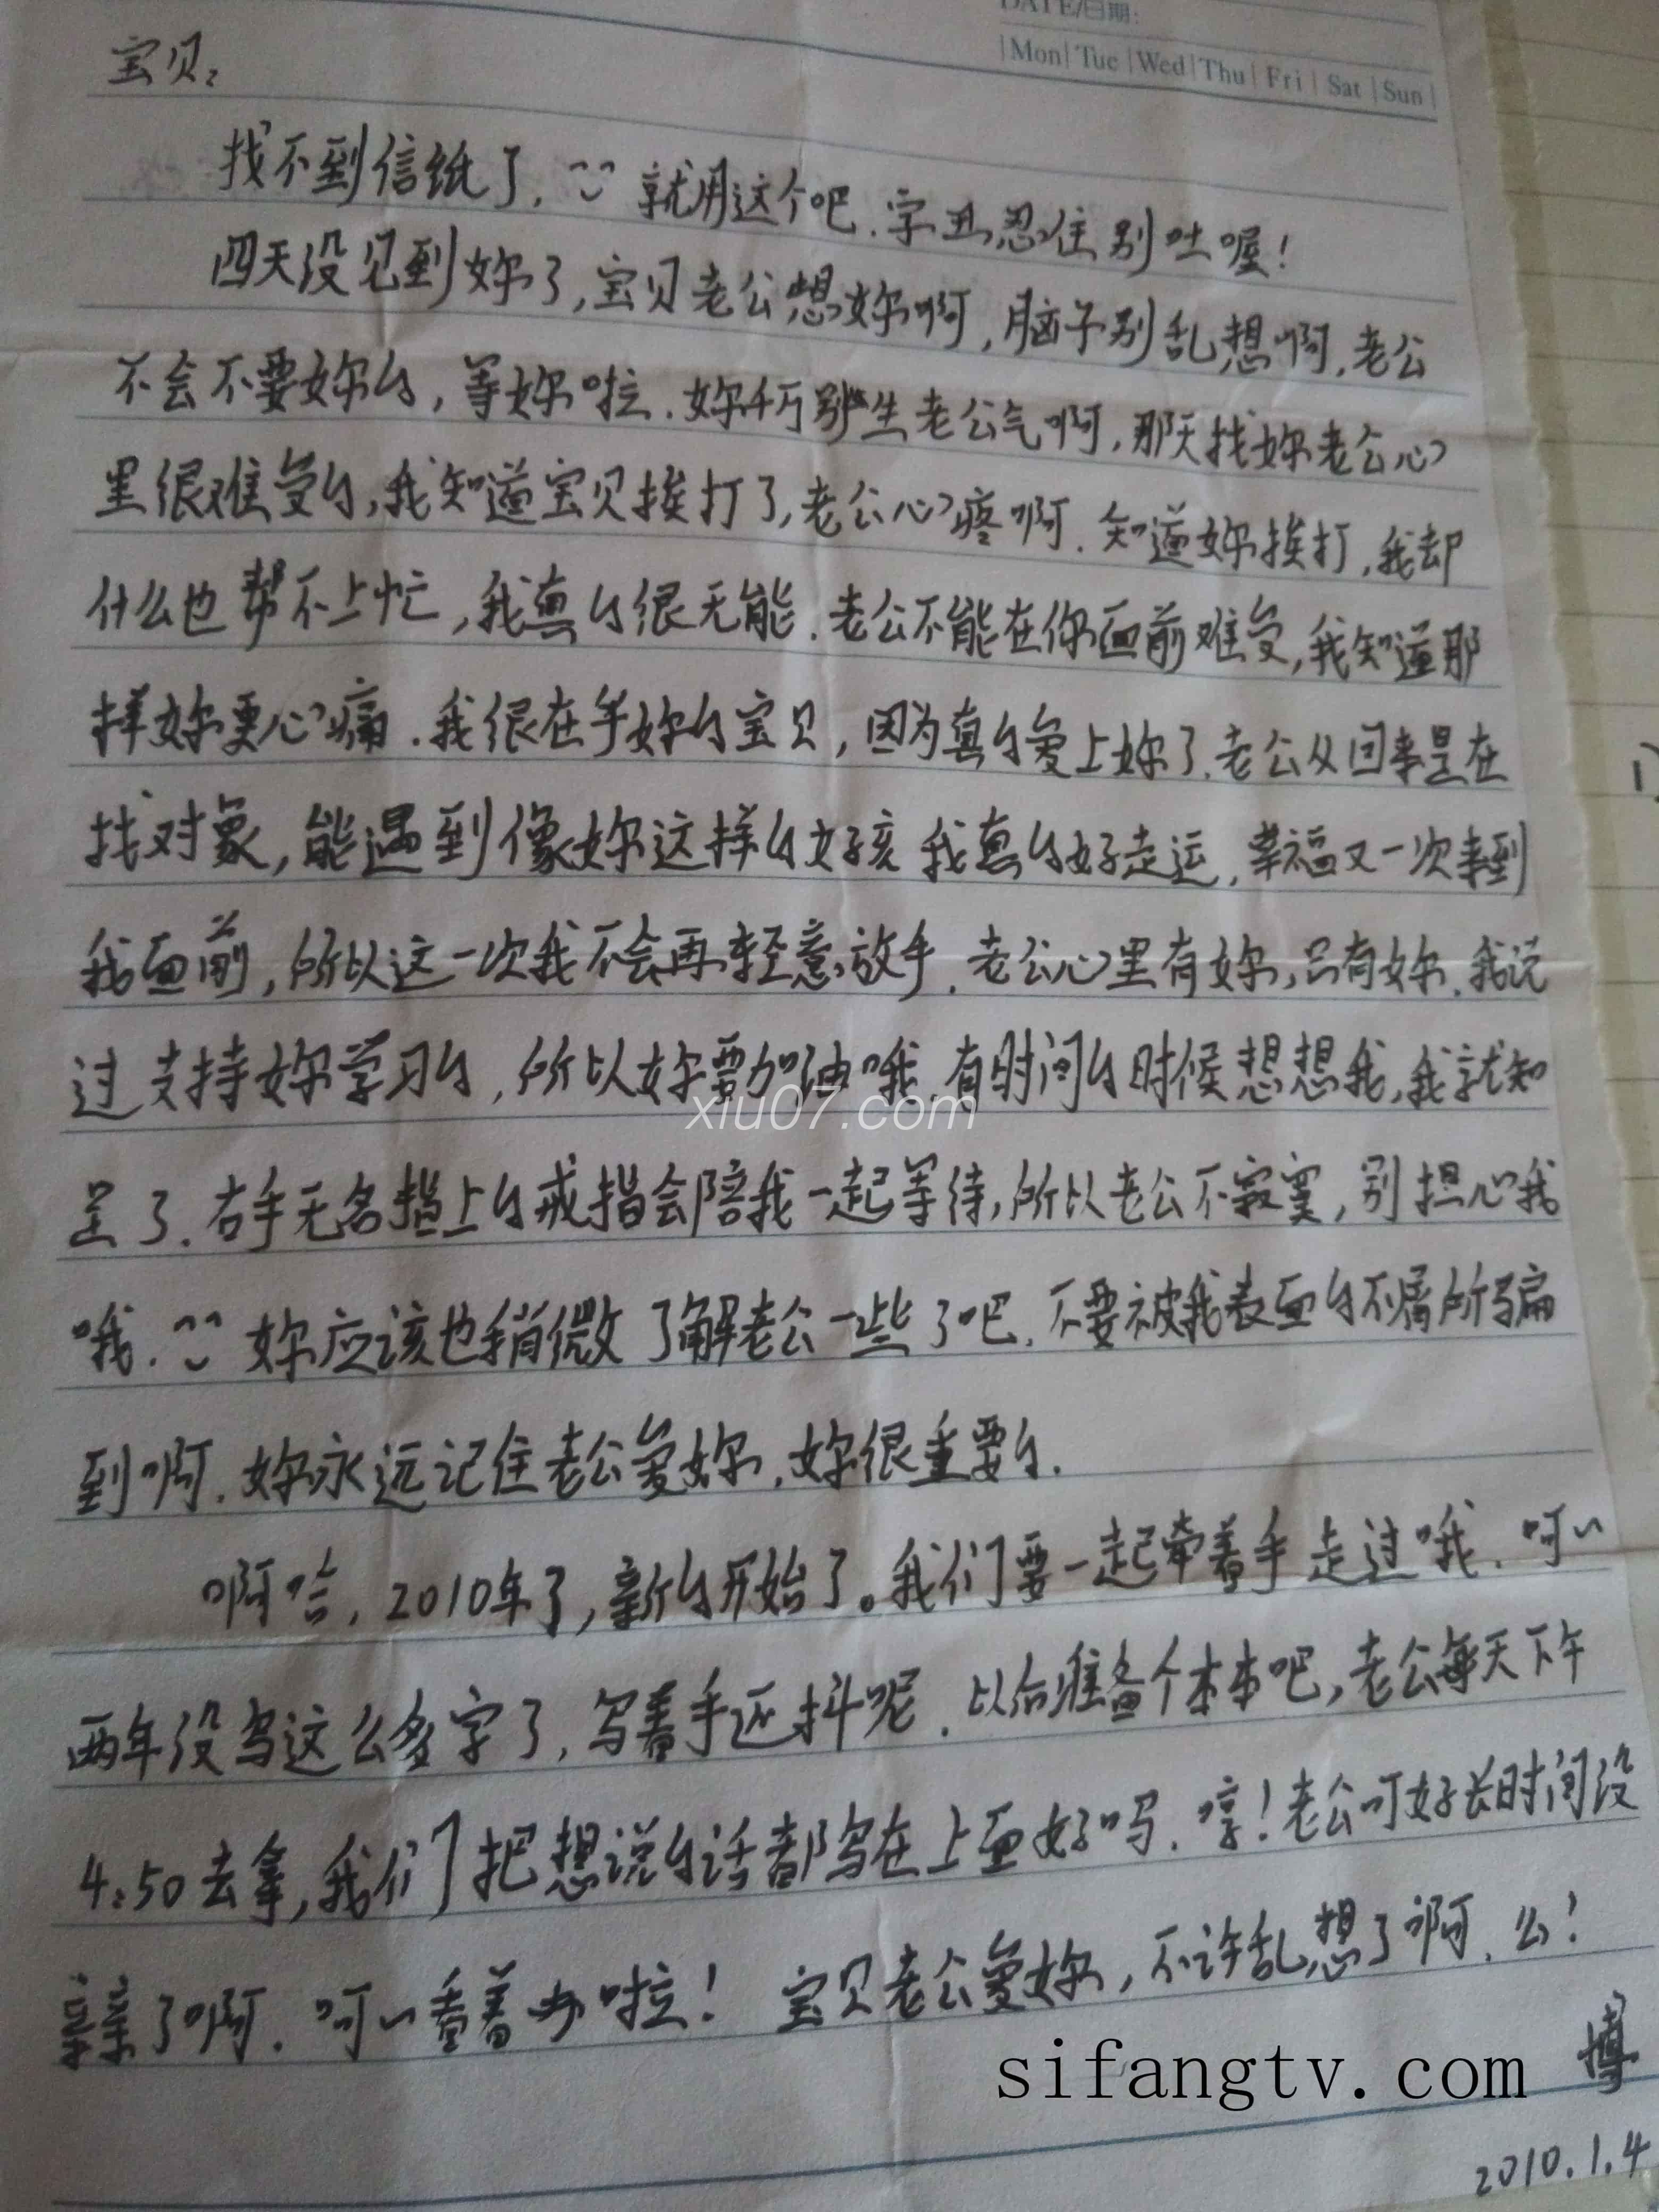 DATE/日期:
Mon Tue Wed Thu Fri Sat Sun
宝贝:
找不到信纸了. 就用这个吧.字丑忍住别吐喔!
四天没见到妳了,宝贝老公想妳啊,脑子别乱想啊,老公
不会不要妳的,等妳啦.妳千万别生老公气啊,那天找妳老公心
里很难受的,我知道宝贝挨打了,老公心疼啊.知道妳挨打,我却
什么也帮不上忙,我真的很无能.老公不能在你面前难受,我知道那
样妳更心痛.我很在乎妳的宝贝,因为真的爱上妳了.老公从回来是在
找对象,能遇到像妳这样的女孩我真的好走运,幸福又一次来到
我面前,所以这一次我不会再轻意放手.老公心里有妳,只有妳.我说
过支持妳学习的,所以妳要加油哦.有时间的时候想想我,我就知
足了.右手无名指上的戒指会陪我一起等待,所以老公不寂寞,别担心我
哦. 妳应该也稍微了解老公一些了吧.不要被我表面的不屑所骗
到啊.妳永远记住老公爱妳.妳很重要的.
啊哈,2010年了,新的开始了。我们要一起牵着手走过哦.呵~
两年没写这么多字了,写着手还抖呢.以后准备个本本吧,老公每天下午
4:50去拿,我们把想说的话都写在上面好吗.哼!老公可好长时间没
亲亲了啊.呵~看着办啦! 宝贝老公爱妳,不许乱想了啊.么!
博
2010.1.4
xiu07.com
sifangtv.com